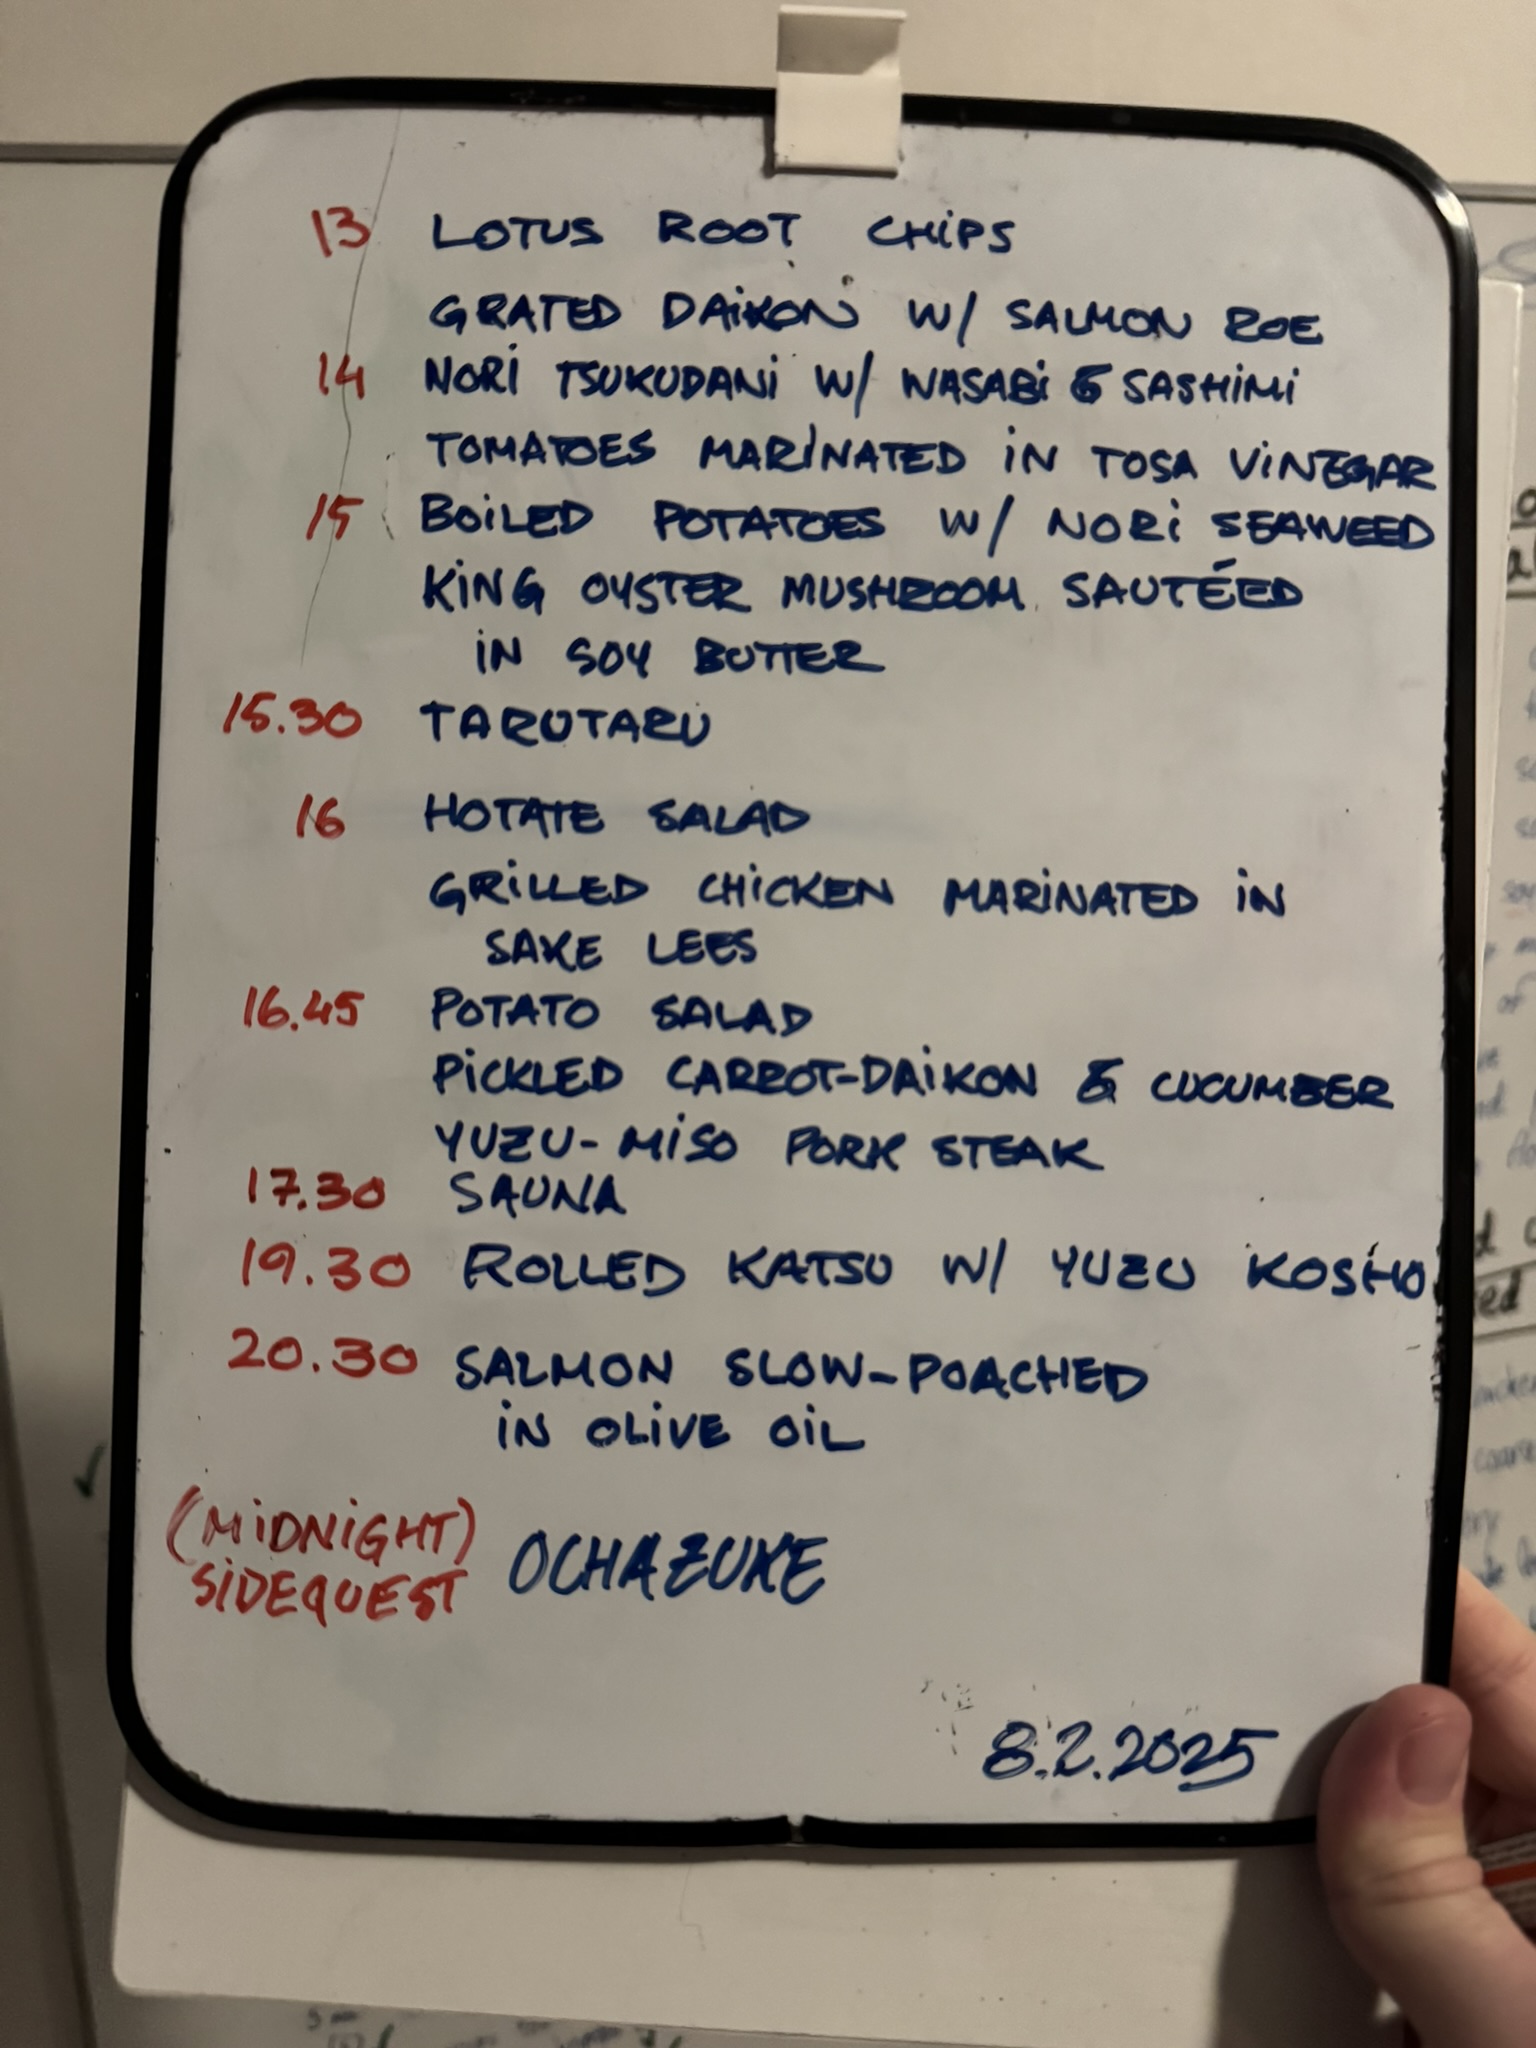 13 LOTUS ROOT CHIPS
GRATED DAIKON W/ SALMON ROE
14 NORI TSUKUDANI W/ WASABI & SASHIMI
TOMATOES MARINATED IN TOSA VINEGAR
15 BOILED POTATOES W/ NORI SEAWEED
KING OYSTER MUSHROOM SAUTÉED
IN SOY BUTTER
15.30 TARUTARU
16 HOTATE SALAD
GRILLED CHICKEN MARINATED IN
SAKE LEES
16.45 POTATO SALAD
PICKLED CARROT-DAIKON & CUCUMBER
YUZU-MISO PORK STEAK
17.30 SAUNA
19.30 ROLLED KATSU W/ YUZU KOSHO
20.30 SALMON SLOW-POACHED
IN OLIVE OIL
(MIDNIGHT)
SIDEQUEST OCHAZUKE
8.2.2025